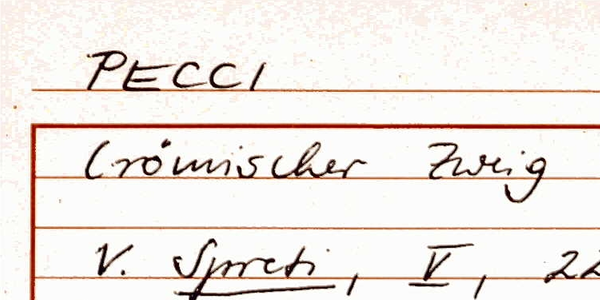 PECCI
(römischer Zweig
V. Spreti, V, 22